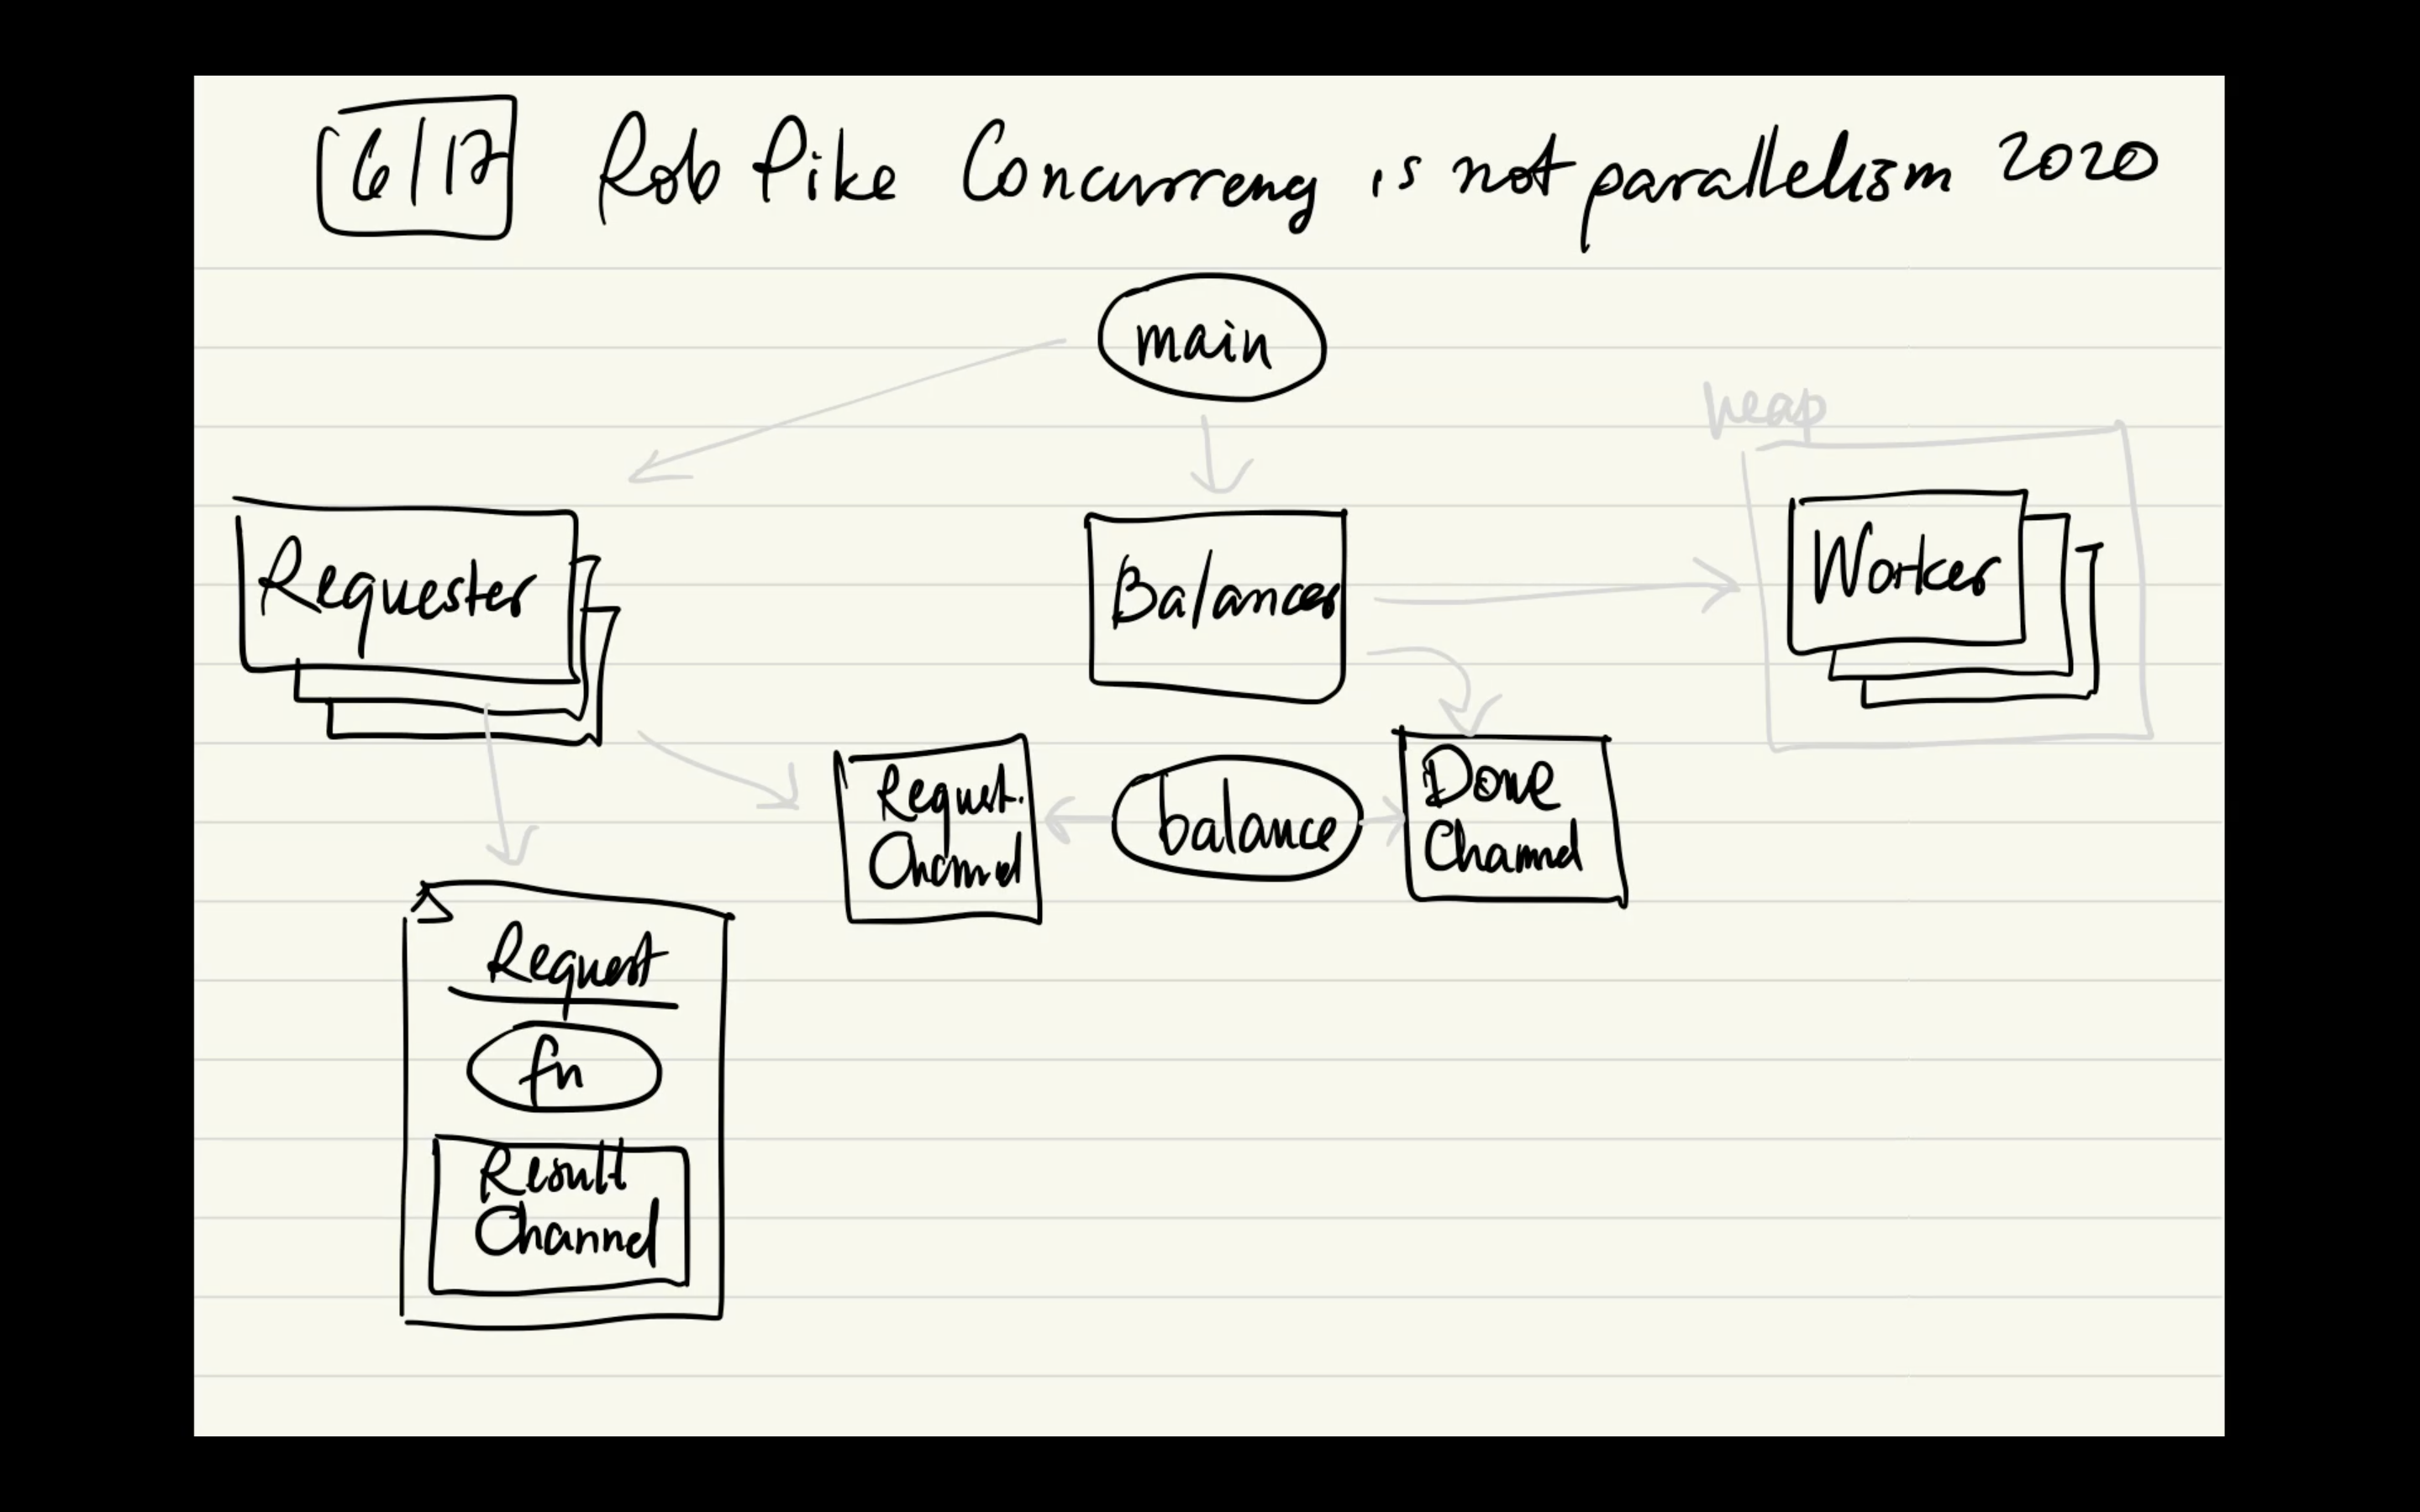 6/12 Rob Pike Concurrency is not parallelism 2020
main
heap
Requester
Balancer
Worker
Request
Channel
balance
Done
Channel
Request
fn
Result
Channel